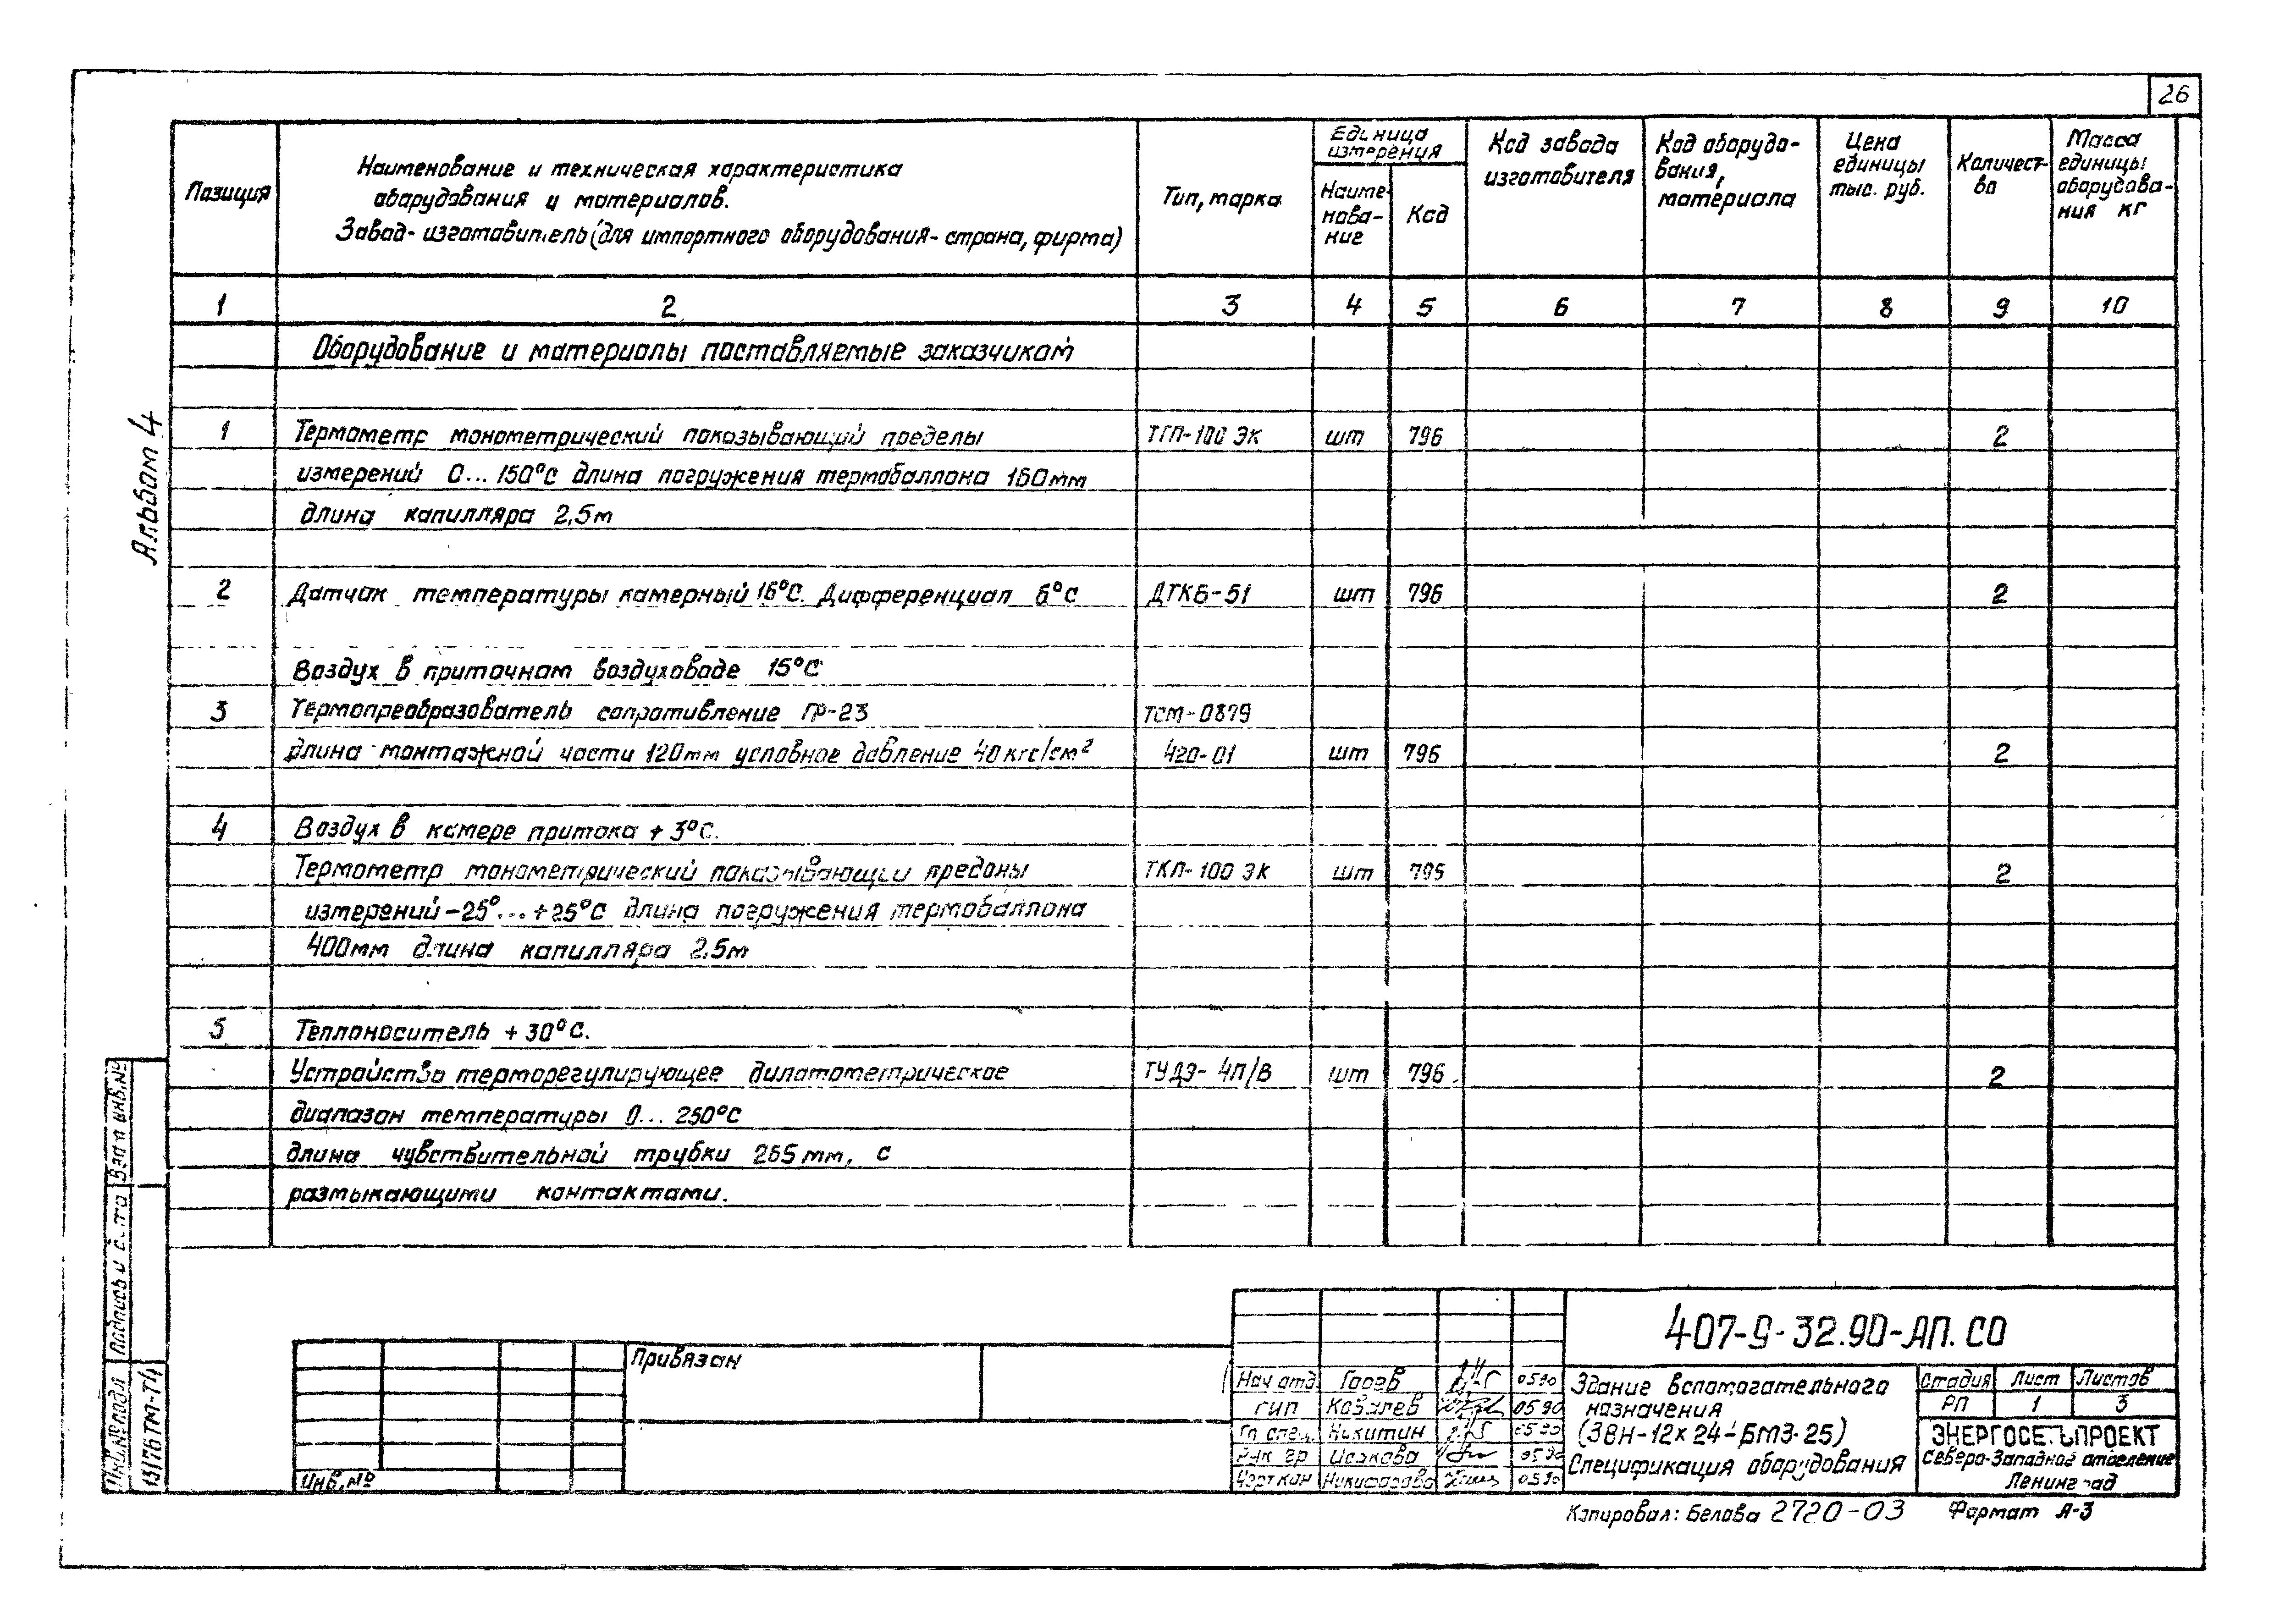 26
Позиция
Наименование и техническая характеристика
оборудования и материалов.
Завод-изготовитель (для импортного оборудования-страна, фирма)
Тип, марка
Единица
измерения
Наиме-
нова-
ние
Код
Код завода
изготовителя
Код оборудо-
вания,
материала
Цена
единицы
тыс. руб.
Количест-
во
Масса
единицы
оборудова-
ния кг
1 2 3 4 5 6 7 8 9 10
Оборудование и материалы поставляемые заказчиком
Альбом 4
1 Термометр монометрический показывающий пределы ТГП-100 ЭК шт 796 2
измерений 0...150°С длина погружения термобаллона 160мм
длина капилляра 2,5м
2 Датчик температуры камерный 16°С. Дифференциал 6°С ДТКБ-51 шт 796 2
Воздух в приточном воздуховоде 15°С
3 Термопреобразователь сопротивление ГР-23 ТСМ-0879
длина монтажной части 120мм условное давление 40кгс/см² 420-01 шт 796 2
4 Воздух в камере притока +3°С.
Термометр монометрический показывающий ТКП-100 ЭК шт 796 2
измерений -25°...+25°С длина погружения термобаллона
400мм длина капилляра 2,5м
5 Теплоноситель +30°С.
Устройство терморегулирующее дилатометрическое ТУДЭ-4П/В шт 796 2
диапазон температуры 0...250°С
длина чувствительной трубки 265мм, с
размыкающими контактами.
Взам инв.№
Подпись и дата
Инв.№подл
13176ТМ-Т4
Привязан
Инв.№
407-9-32.90-АП.СО
Нач отд. Гоов 0590
ГИП Ковалев 0590
Гл спец. Никитин 0590
Рук гр Исакова 0590
Никифорова 0590
Здание вспомогательного
назначения
(ЗВН-12х24-БМЗ-25)
Спецификация оборудования
Стадия Лист Листов
РП 1 3
ЭНЕРГОСЕТЬПРОЕКТ
Северо-Западное отделение
Ленинград
Копировал: Белова 2720-03 Формат А-3